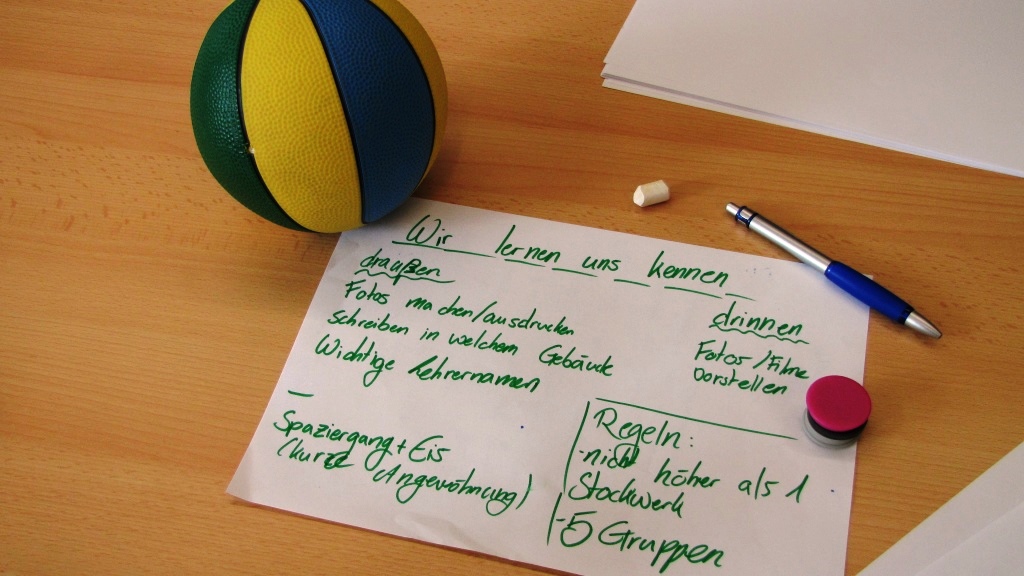 Wir lernen uns kennen
draußen
Fotos machen/ausdrucken
schreiben in welchem Gebäude
Wichtige Lehrernamen
Spaziergang + Eis
(kurze Angewöhnung)
drinnen
Fotos/Filme
vorstellen
Regeln:
- nicht höher als 1
Stockwerk
- 5 Gruppen